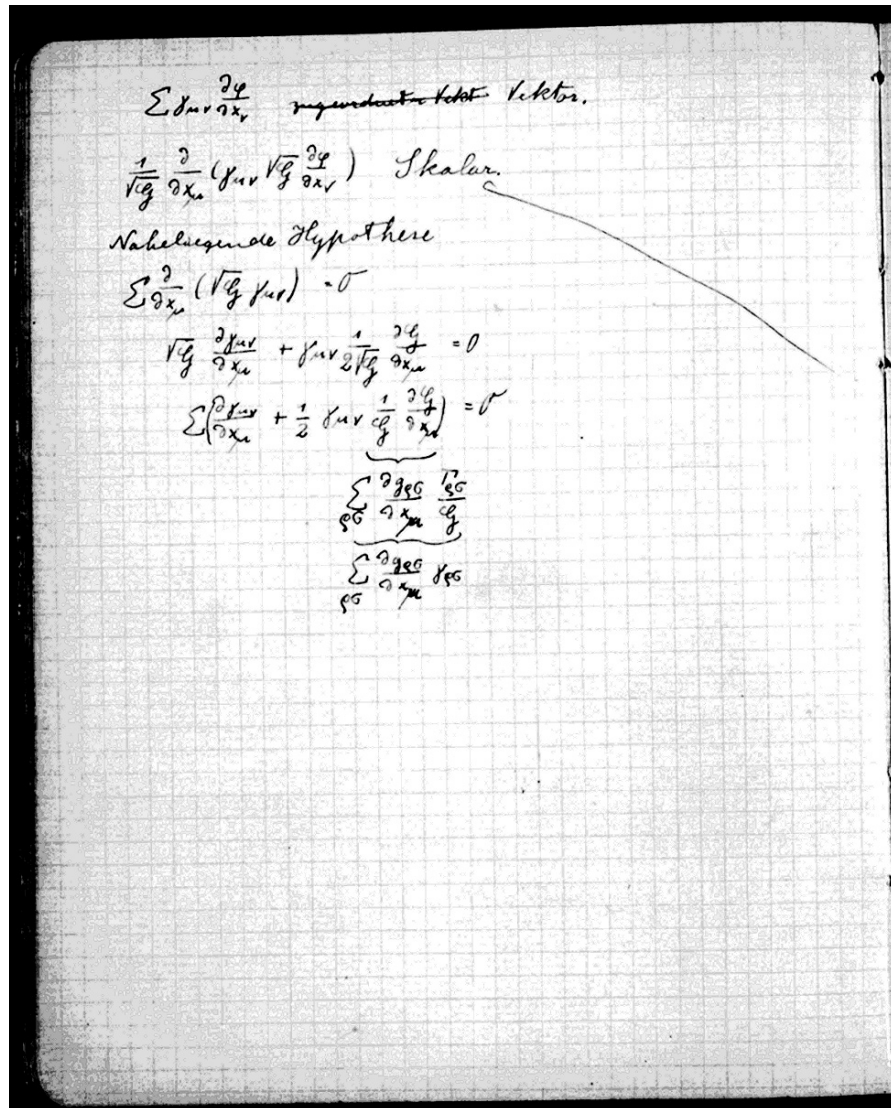 ∑ γ_μν ∂φ/∂x_ν ~~zugeordneter Vekt~~ Vektor.
1/√G ∂/∂x_μ (γ_μν √G ∂φ/∂x_ν) Skalar.
Naheliegende Hypothese
∑ ∂/∂x_μ (√G γ_μν) = 0
√G ∂γ_μν/∂x_μ + γ_μν 1/(2√G) ∂G/∂x_μ = 0
∑(∂γ_μν/∂x_μ + 1/2 γ_μν 1/G ∂G/∂x_μ) = 0
∑_ρσ ∂g_ρσ/∂x_μ Γ_ρσ/G
∑_ρσ ∂g_ρσ/∂x_μ γ_ρσ